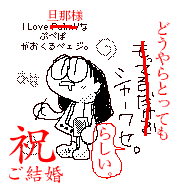 旦那様
I Love な
ぷぺぱ
がおくるページ。
どうやらとっても
シャーワセ。
らしい。
祝
ご結婚